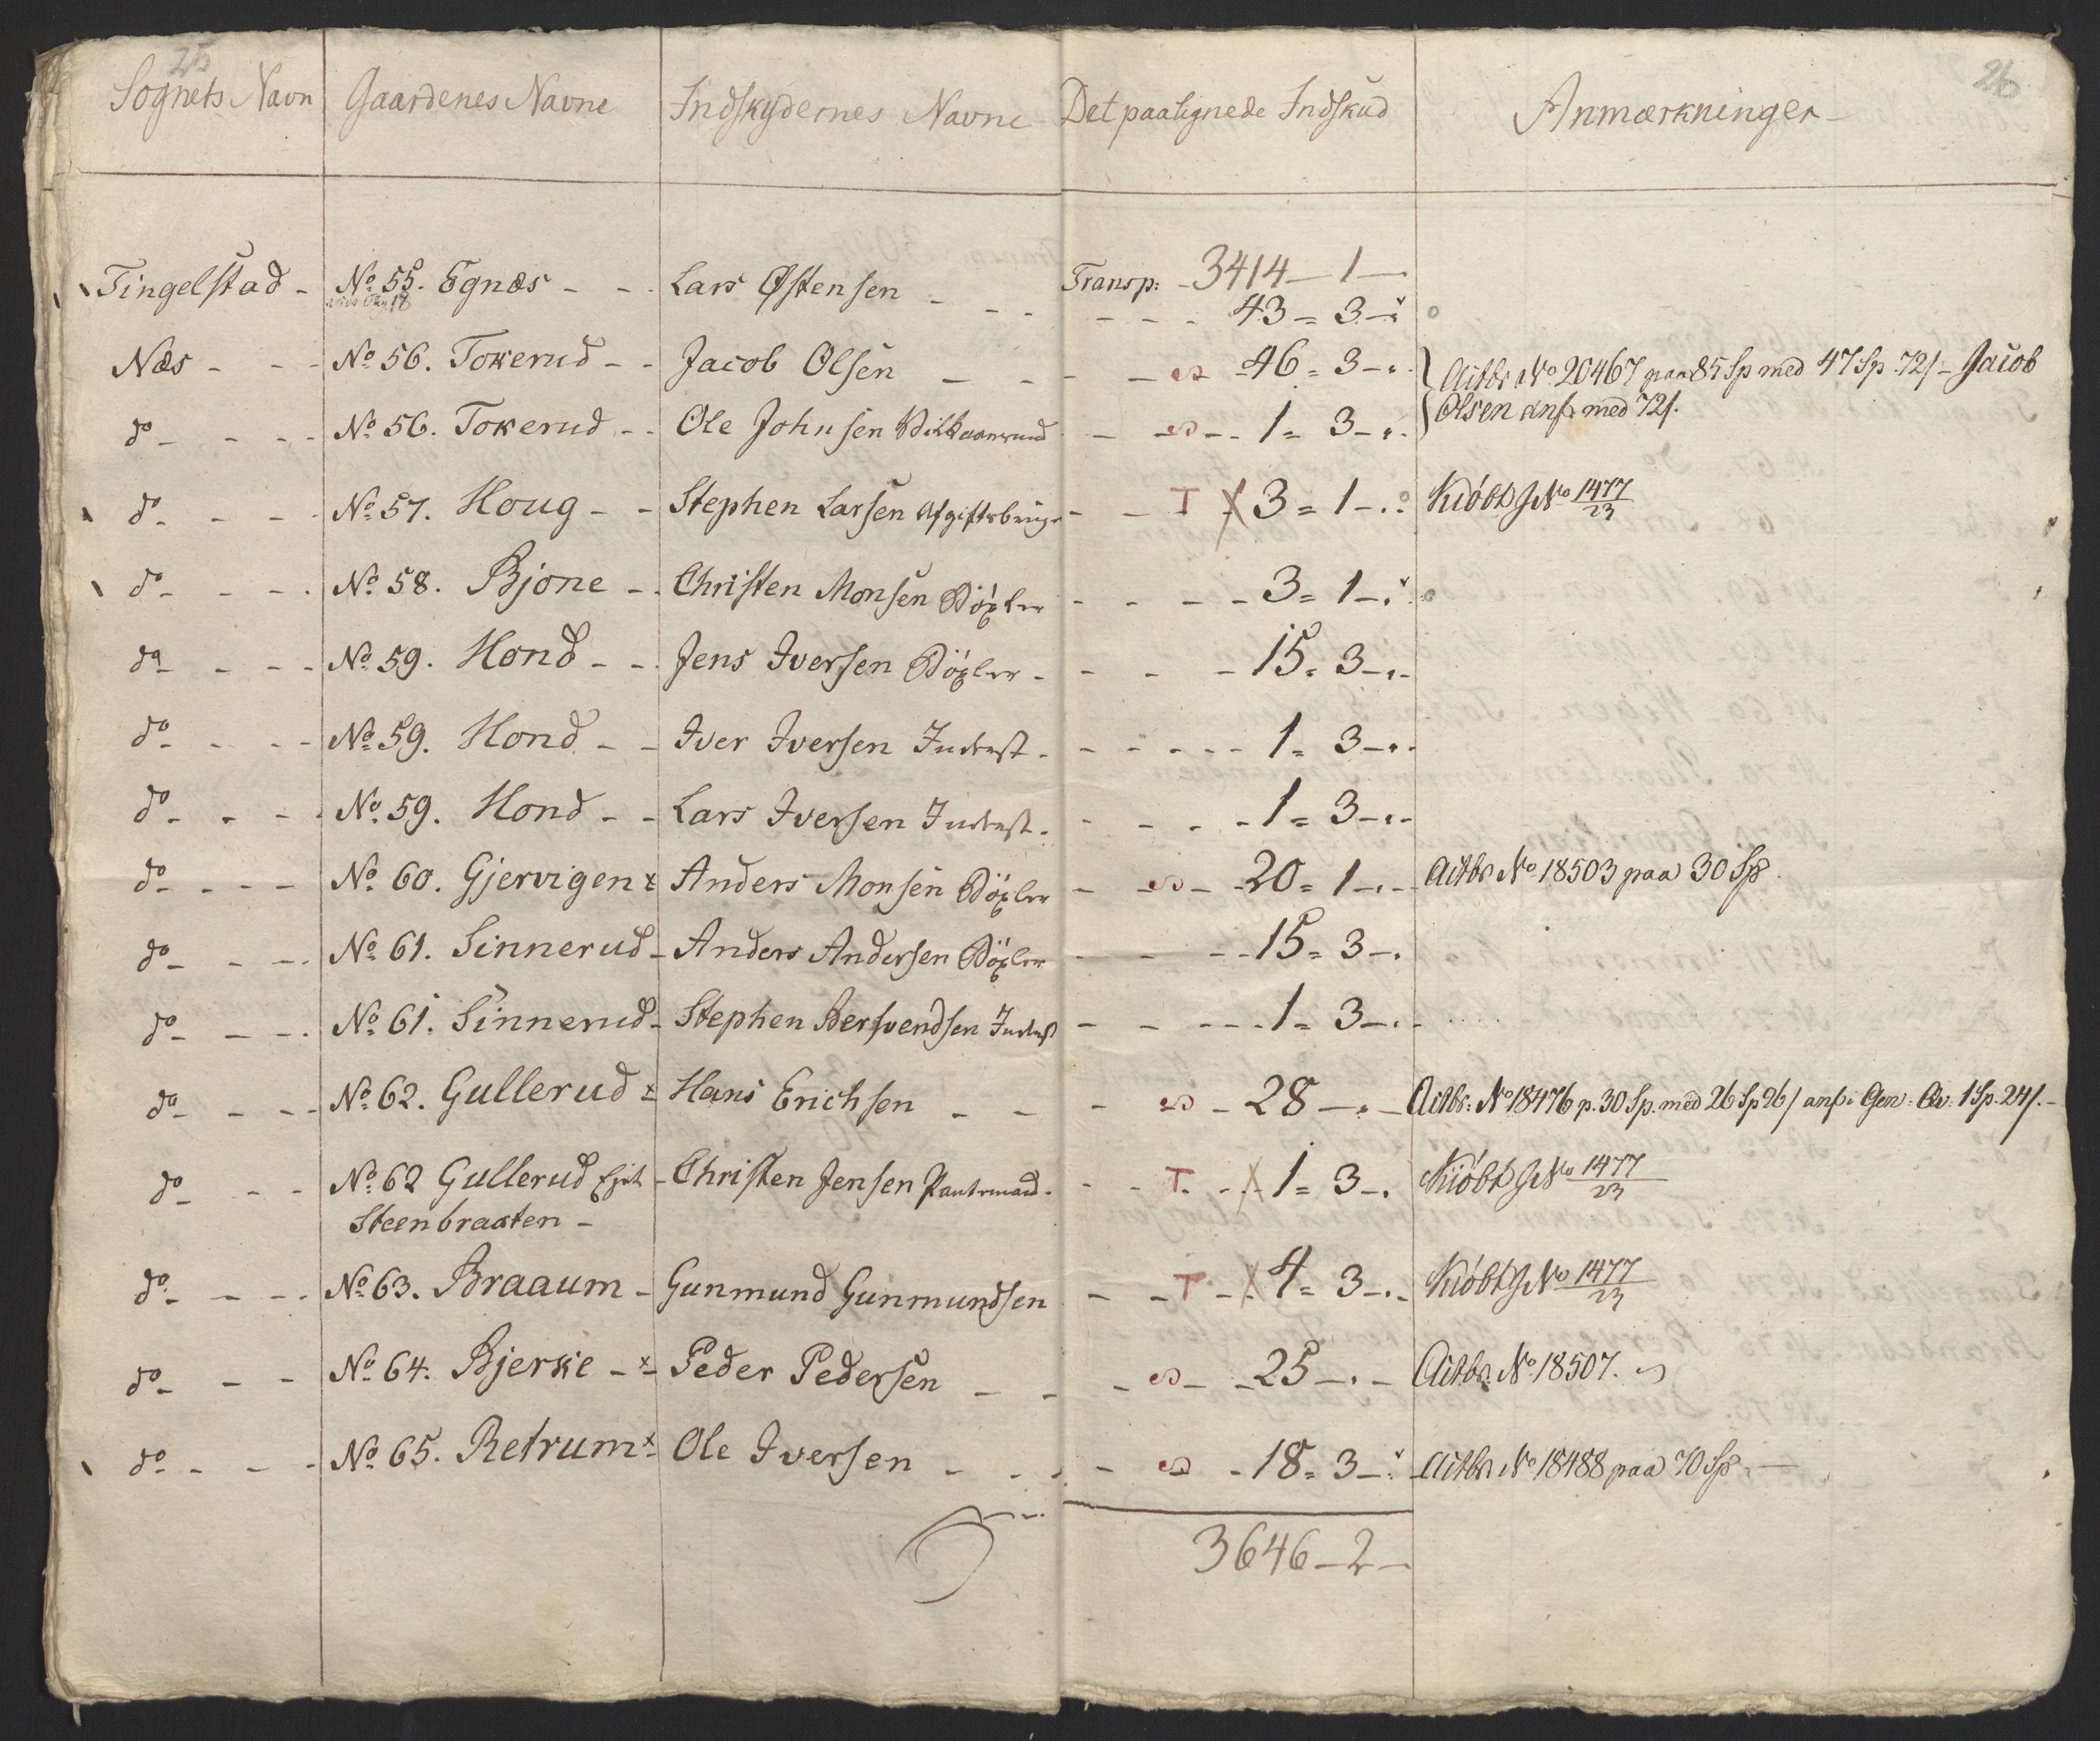 25
26
Sognets Navn Gaardenes Navne Indskydernes Navne Det paalignede Indskud Anmærkninger
Transp: 3414 - 1 -
Tingelstad - No 55. Egnæs - - Lars Østensen - - - 43 = 3 -
Næs - - - No 56. Tokerud - - Jacob Olsen - - - 46 = 3 - Actbr No 20467 paa 85 Sp med 47 Sp 72/ - Jacob
do - - - No 56. Tokerud - - Ole Johnsen - - - 1 = 3 - Olsen anf. med 72/.
do - - - No 57. Houg - - Stephen Larsen - - T X 3 = 1 - Kiöbt J No 1477/23
do - - - No 58. Bjone - - Christen Monsen Böxler - - - 3 = 1 -
do - - - No 59. Hond - - Jens Iversen Böxler - - - 15 = 3 -
do - - - No 59. Hond - - Iver Iversen Inderst - - - 1 = 3 -
do - - - No 59. Hond - - Lars Iversen Inderst - - - 1 = 3 -
do - - - No 60. Gjervigen x Anders Monsen Böxler - - - 20 = 1 - Actbr No 18503 paa 30 Sp.
do - - - No 61. Sinnerud - Anders Andersen Böxler - - - 15 = 3 -
do - - - No 61. Sinnerud - Stephen Bersvendsen Inderst - - - 1 = 3 -
do - - - No 62. Gullerud x Hans Erichsen - - - 28 - Actbr: No 18476 p. 30 Sp. med 26 Sp 96/ anf. i Gen: Qv: 1 Sp. 24/. -
do - - - No 62 Gullerud Christen Jensen - - T. X 1 = 3 -. Kiöbt J No 1477/23
Steenbraaten -
do - - - No 63. Braaum - Gunmund Gunmundsen - - T - X 4 = 3 - Kiöbt J No 1477/23
do - - - No 64. Bjerke - x Peder Pedersen - - - 25 - Actbr. No 18507.
do - - - No 65. Retrum x Ole Iversen - - - 18 = 3 - Actbr No 18488 paa 70 Sp. -
3646 - 2 -